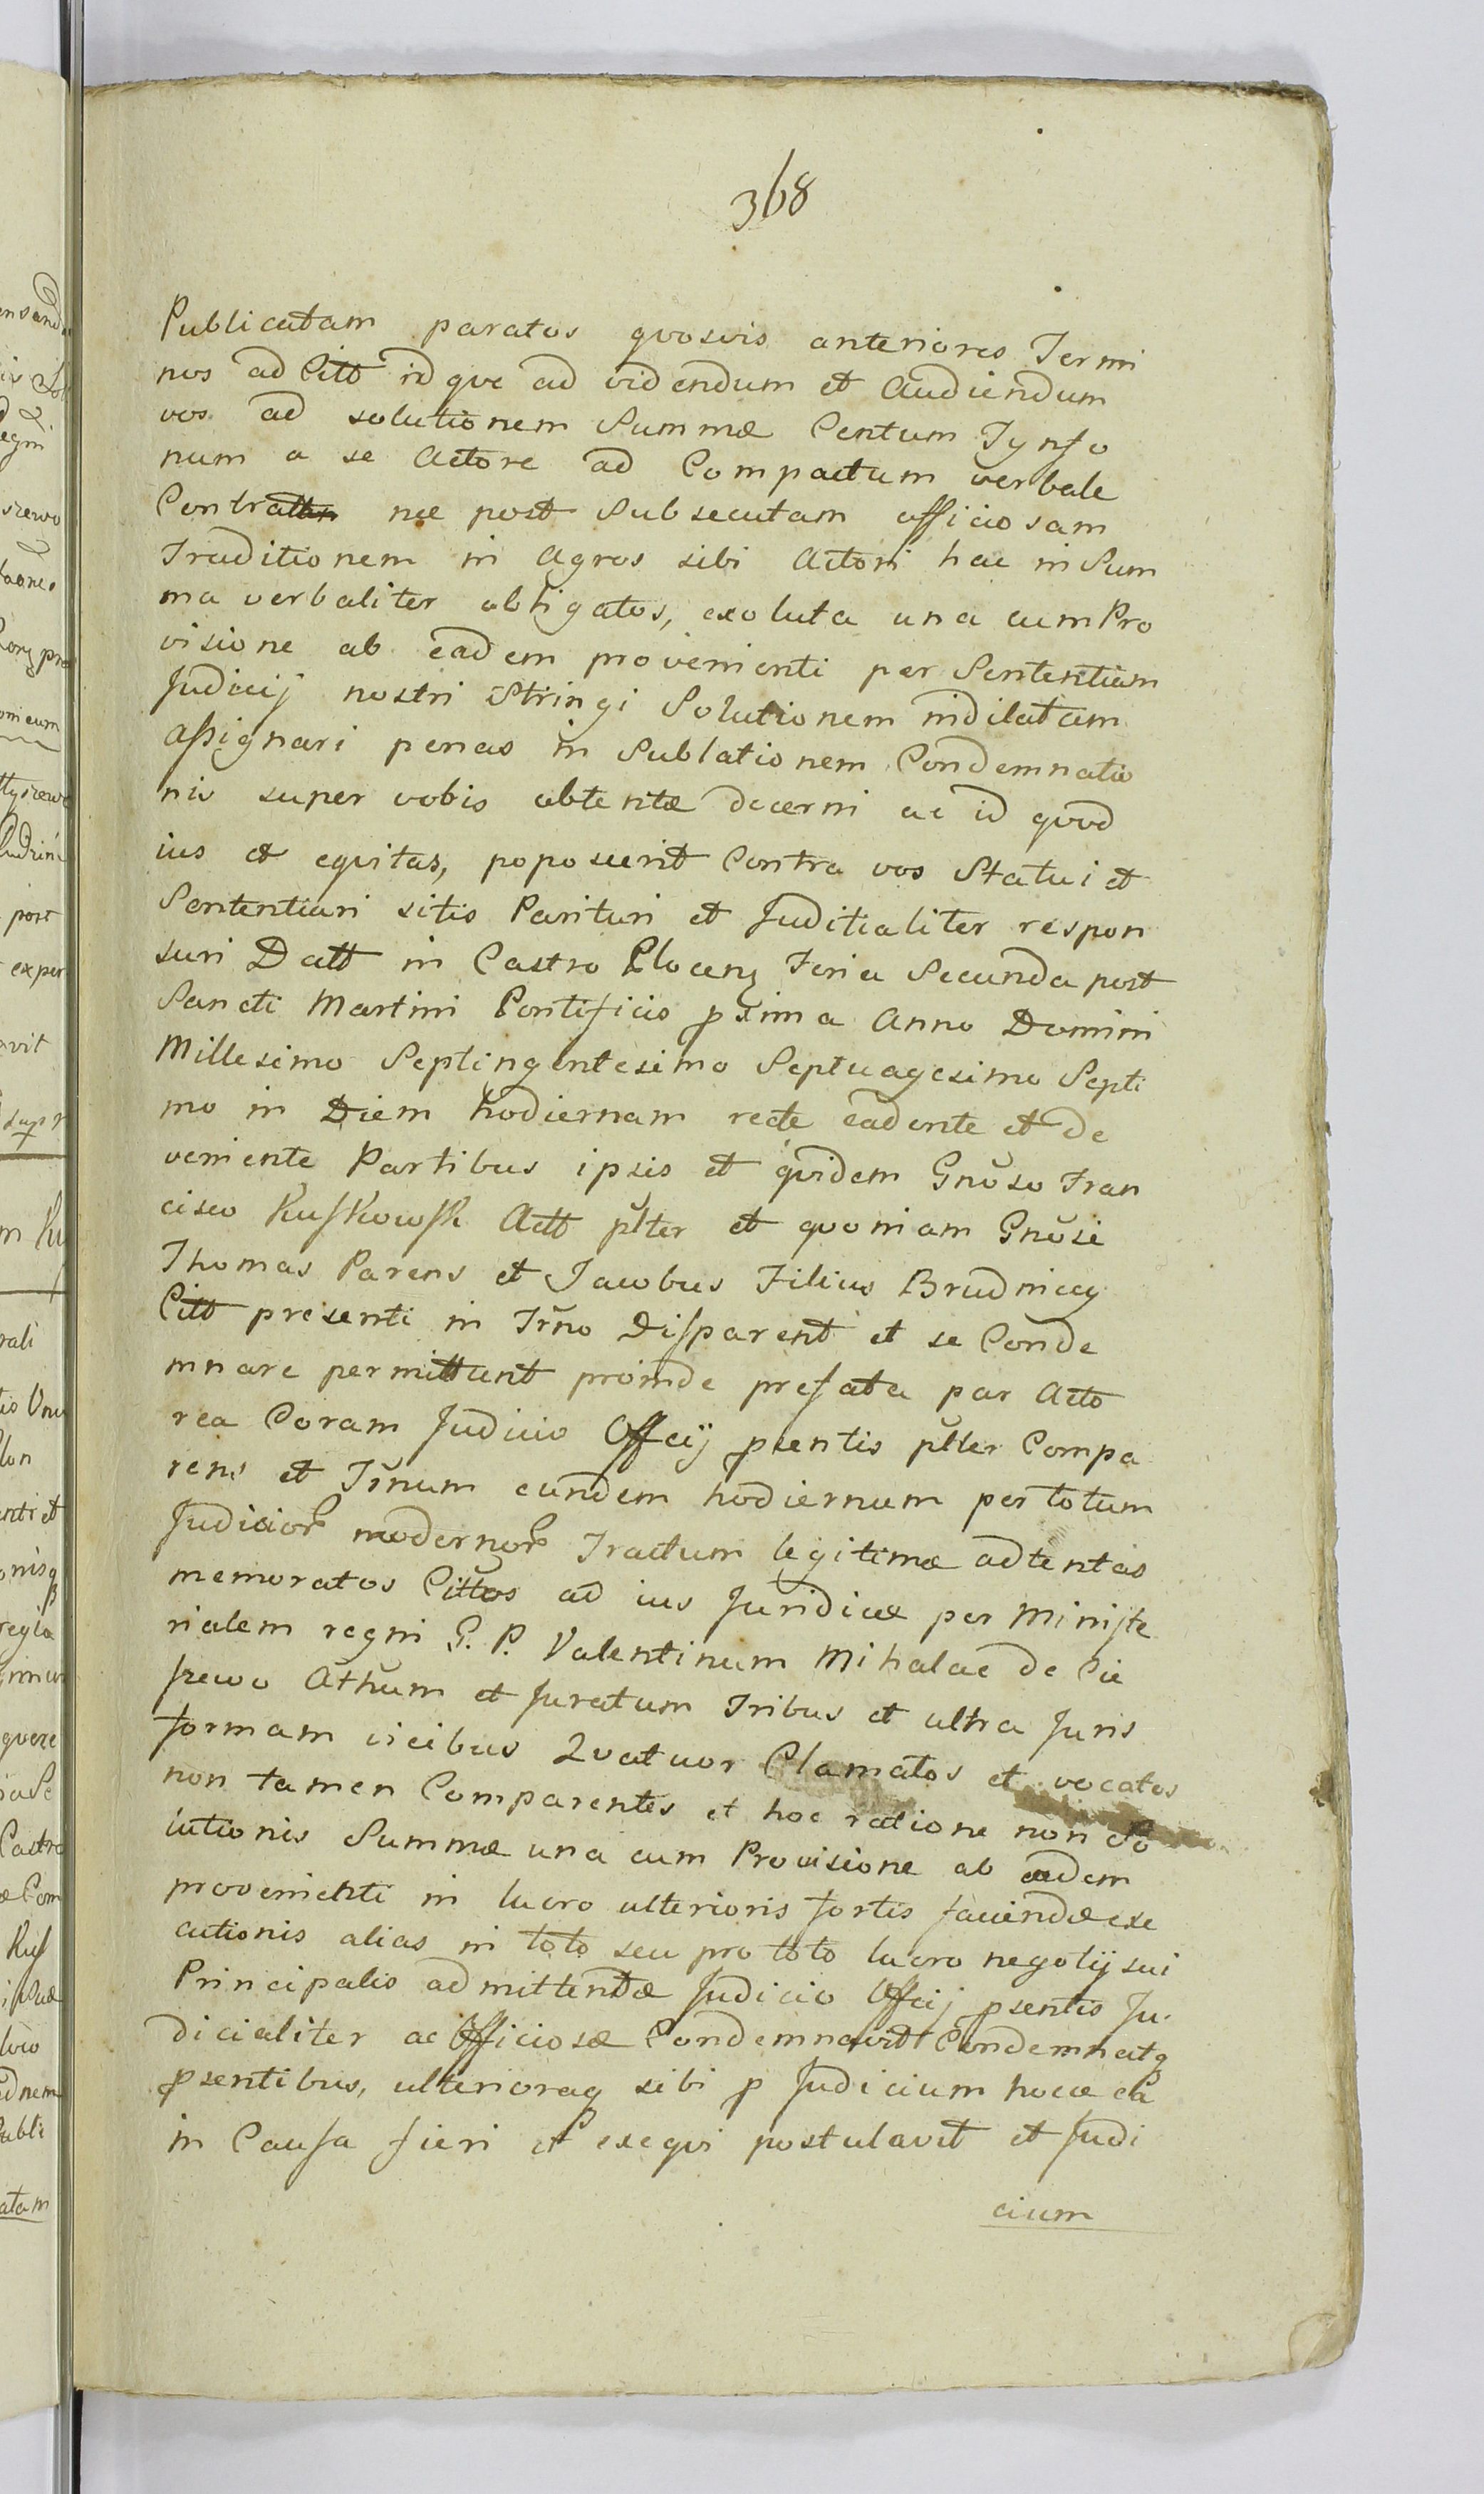 368
Publicatam paratos quosvis anteriores Termi
nos ad Citt idque ad videndum et audiendum
vos ad solutionem Summæ Centum Tynfo
num a se Actore ad Compactum verbale
Contra næ post Subsecutam officiosam
Traditionem in Agros sibi Actori hac in Sum
ma verbaliter obligatos, exoluta una cum Pro
visione ab eadem provenienti per Sententiam
Judicij nostri Stringi Solutionem indilatam
assignari penas in Sublationem Condemnatio
nis super vobis obtentæ decerni ac id quod
ius et equitas, poposcerit Contra vos Statui et
Sententiari sitis Parituri et Juditialiter respon
suri Datt in Castro Plocen Feria Secunda post
Sancti Martini Pontificis pxima Anno Domini
Millesimo Septingentesimo Septuagesimo Septi
mo in Diem hodiernam recte cadente et de
veniente Partibus ipsis et quidem Gnoso Fran
cisco Kuskowsk Actt plter et quoniam Gnosi
Thomas Parens et Jacobus Filius Brudniccy
Citt presenti in Trno Disparent et se Conde
mnare permittunt proinde prefata par Acto
rea Coram Judicio Offcij psentis plter Compa
rens et Trnum eundem hodiernum per totum
Judicior modernor Tractum legitimæ adtentas
memoratos Cittos ad ius Juridicæ per Ministe
rialem regni G. P. Valentinum Mihalac de Cie
szewo Athum et Juratum Tribus et ultra Juris
formam vicibus Quatuor Clamatos et vocatos
non tamen Comparentes et hoc ratione non So
lutionis Summæ una cum Provisione ab eadem
provenienti in lucro ulterioris fortis faciendæ exe
cutionis alias in toto seu pro toto lucro negotij sui
Principalis admittendæ Judicio Offcij psentis Ju.
dicialiter ac Officiosæ Condemnavit Condemnatq
psentibus, ulterioraq sibi p Judicium hocce ea
in Causa fieri et exequi postulavit et Judi
cium